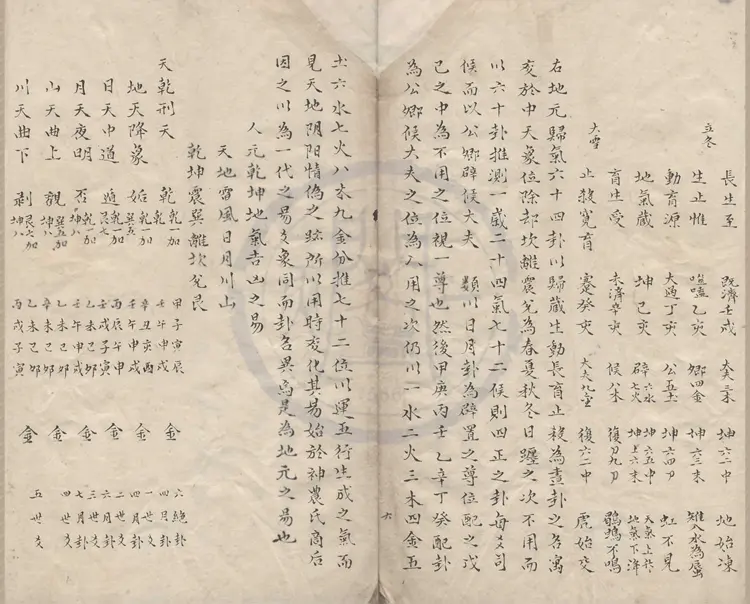 立冬
長生至 既濟壬戌 大夫三木 坤六二中 地始凍
生止惟 噬嗑乙亥 卿四金 坤六三木 雉入水為蜃
動育源 大過丁亥 公五土 坤六四 虹不見
地氣藏 坤己亥 辟六水七火 坤六五中 坤上六末 天氣上升 地氣下降
育生受 未濟辛亥 候八木 復初九 鶡鴠不鳴
大雪
止殺寬育 蹇癸亥 大夫九金 復六二中 虎始交
右地元歸氣六十四卦以歸藏生動長育止殺為畫卦之名寓
爻於中天象位除却坎離震兌為春夏秋冬日躔之次不用而
以六十卦推測一歲二十四氣七十二候則四正之卦每爻司
候而以公卿辟候大夫 類以日月卦為辟置之尊位配之戊
己之中為不用之位視一尊也然後甲庚丙壬乙辛丁癸配卦
為公卿候大夫之位為入用之次仍以一水二火三木四金五
土六水七火八木九金分推七十二位以運五行生成之氣而
見天地阴阳情偽之跡所以用時变化其易始於神農氏商后
因之以為一代之易爻象同而卦名異焉是為地元之易也
人元乾坤地氣吉凶之易
天地雷風日月川山
乾坤震巽離坎兌艮
天乾刑天 乾 乾一加乾一 甲子寅辰 壬午申戌 金 六總卦 四月卦
地天降象 姤 乾一加巽五 辛丑亥酉 壬午申戌 金 一世爻
日天中道 遁 乾一加艮七 丙辰午申 壬午申戌 金 二世爻 六月卦
月天夜明 否 乾一加坤八 乙未己卯 壬午申戌 金 三世爻 七月卦
山天曲上 觀 巽五加坤八 乙未己卯 辛未己卯 金 四世爻
川天曲下 剥 艮七加坤八 乙未己卯 丙戌子寅 金 五世爻
六